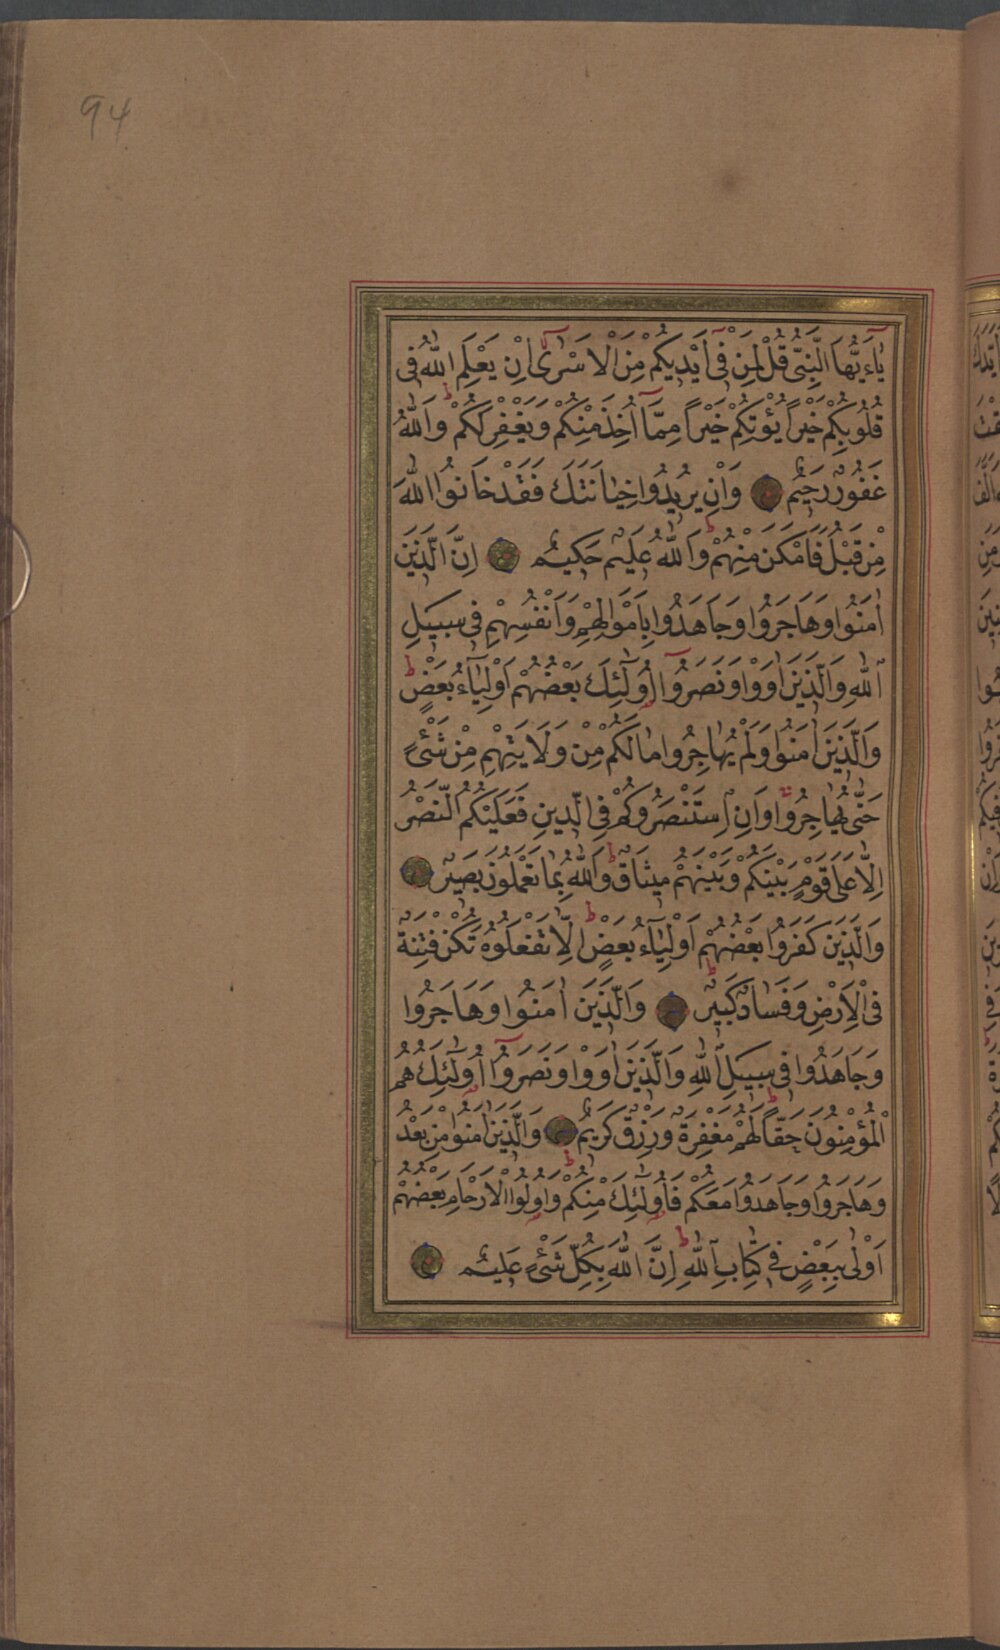 94
يَٓا اَيُّهَا النَّبِيُّ قُلْ لِمَنْ فِٓى اَيْدِيكُمْ مِنَ الْاَسْرٰٓى اِنْ يَعْلَمِ اللّٰهُ فِى
قُلُوبِكُمْ خَيْرًا يُؤْتِكُمْ خَيْرًا مِمَّٓا اُخِذَ مِنْكُمْ وَيَغْفِرْ لَكُمْ ط وَاللّٰهُ
غَفُورٌ رَحِيمٌ وَاِنْ يُرِيدُوا خِيَانَتَكَ فَقَدْ خَانُوا اللّٰهَ
مِنْ قَبْلُ فَاَمْكَنَ مِنْهُمْ ط وَاللّٰهُ عَلِيمٌ حَكِيمٌ اِنَّ الَّذِينَ
اٰمَنُوا وَهَاجَرُوا وَجَاهَدُوا بِاَمْوَالِهِمْ وَاَنْفُسِهِمْ فِى سَبِيلِ
اللّٰهِ وَالَّذِينَ اٰوَوْا وَنَصَرُٓوا اُولٰٓئِكَ بَعْضُهُمْ اَوْلِيَٓاءُ بَعْضٍ ط
وَالَّذِينَ اٰمَنُوا وَلَمْ يُهَاجِرُوا مَا لَكُمْ مِنْ وَلَايَتِهِمْ مِنْ شَىْءٍ
حَتّٰى يُهَاجِرُوا وَاِنِ اسْتَنْصَرُوكُمْ فِى الدِّينِ فَعَلَيْكُمُ النَّصْرُ
اِلَّا عَلٰى قَوْمٍ بَيْنَكُمْ وَبَيْنَهُمْ مِيثَاقٌ ط وَاللّٰهُ بِمَا تَعْمَلُونَ بَصِيرٌ
وَالَّذِينَ كَفَرُوا بَعْضُهُمْ اَوْلِيَٓاءُ بَعْضٍ ط اِلَّا تَفْعَلُوهُ تَكُنْ فِتْنَةٌ
فِى الْاَرْضِ وَفَسَادٌ كَبِيرٌ ط وَالَّذِينَ اٰمَنُوا وَهَاجَرُوا
وَجَاهَدُوا فِى سَبِيلِ اللّٰهِ وَالَّذِينَ اٰوَوْا وَنَصَرُٓوا اُولٰٓئِكَ هُمُ
الْمُؤْمِنُونَ حَقًّا ط لَهُمْ مَغْفِرَةٌ وَرِزْقٌ كَرِيمٌ وَالَّذِينَ اٰمَنُوا مِنْ بَعْدُ
وَهَاجَرُوا وَجَاهَدُوا مَعَكُمْ فَاُولٰٓئِكَ مِنْكُمْ ط وَاُولُوا الْاَرْحَامِ بَعْضُهُمْ
اَوْلٰى بِبَعْضٍ فِى كِتَابِ اللّٰهِ ط اِنَّ اللّٰهَ بِكُلِّ شَىْءٍ عَلِيمٌ